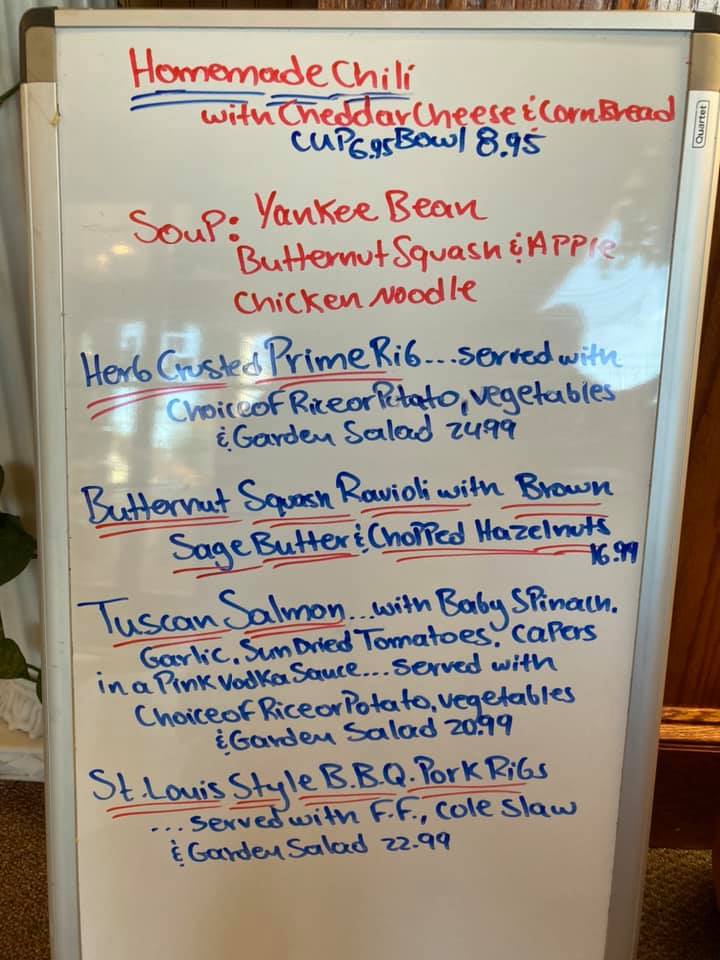 Homemade Chili
with Cheddar Cheese & Corn Bread
CUP 6.95 Bowl 8.95
Quartet
Soup: Yankee Bean
Butternut Squash & Apple
Chicken Noodle
Herb Crusted Prime Rib...served with
Choice of Rice or Potato, vegetables
& Garden Salad 24.99
Butternut Squash Ravioli with Brown
Sage Butter & Chopped Hazelnuts
16.99
Tuscan Salmon...with Baby Spinach.
Garlic, Sun Dried Tomatoes, capers
in a Pink Vodka Sauce...served with
Choice of Rice or Potato, vegetables
& Garden Salad 20.99
St. Louis Style B.B.Q. Pork Ribs
...served with F.F., cole slaw
& Garden Salad 22.99